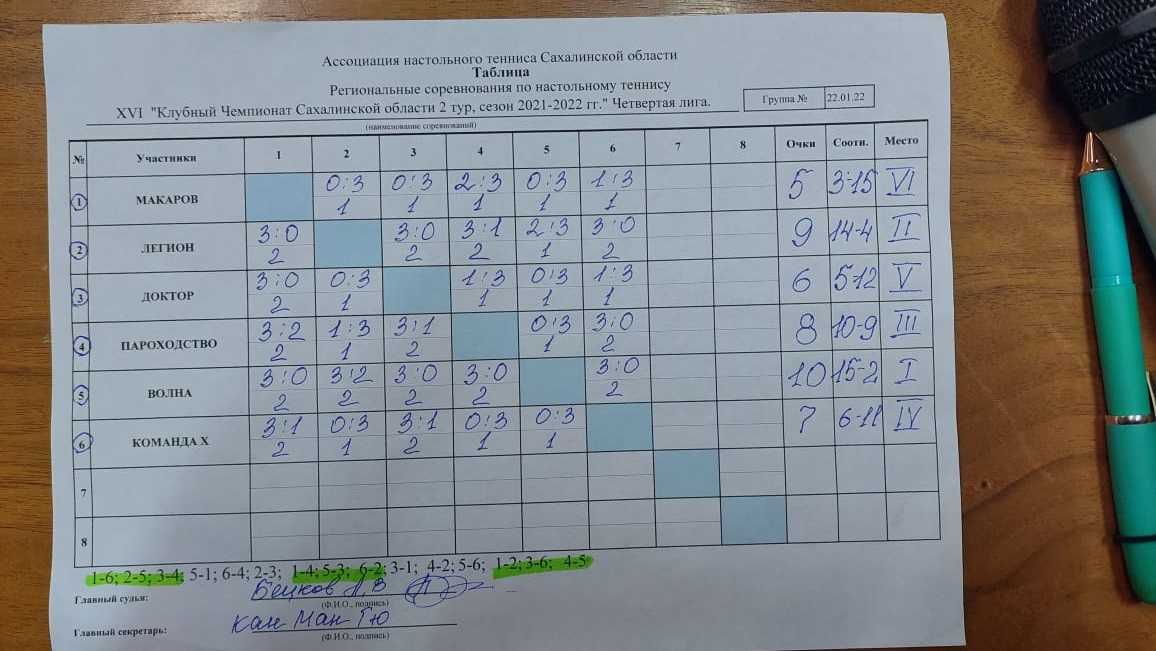 Ассоциация настольного тенниса Сахалинской области
Таблица
Региональные соревнования по настольному теннису
XVI "Клубный Чемпионат Сахалинской области 2 тур, сезон 2021-2022 гг." Четвертая лига.
Группа № 22.01.22
(наименование соревнований)
№ Участники 1 2 3 4 5 6 7 8 Очки Соотн. Место
1 МАКАРОВ 0:3 0:3 2:3 0:3 1:3 5 3-15 VI
1 1 1 1 1
2 ЛЕГИОН 3:0 3:0 3:1 2:3 3:0 9 14-4 II
2 2 2 1 2
3 ДОКТОР 3:0 0:3 1:3 0:3 1:3 6 5-12 V
2 1 1 1 1
4 ПАРОХОДСТВО 3:2 1:3 3:1 0:3 3:0 8 10-9 III
2 1 2 1 2
5 ВОЛНА 3:0 3:2 3:0 3:0 3:0 10 15-2 I
2 2 2 2 2
6 КОМАНДА X 3:1 0:3 3:1 0:3 0:3 7 6-11 IV
2 1 2 1 1
7
8
1-6; 2-5; 3-4; 5-1; 6-4; 2-3; 1-4; 5-3; 6-2; 3-1; 4-2; 5-6; 1-2; 3-6; 4-5
Главный судья: Бецков А.В
(Ф.И.О., подпись)
Главный секретарь: Кан Ман Гю
(Ф.И.О., подпись)